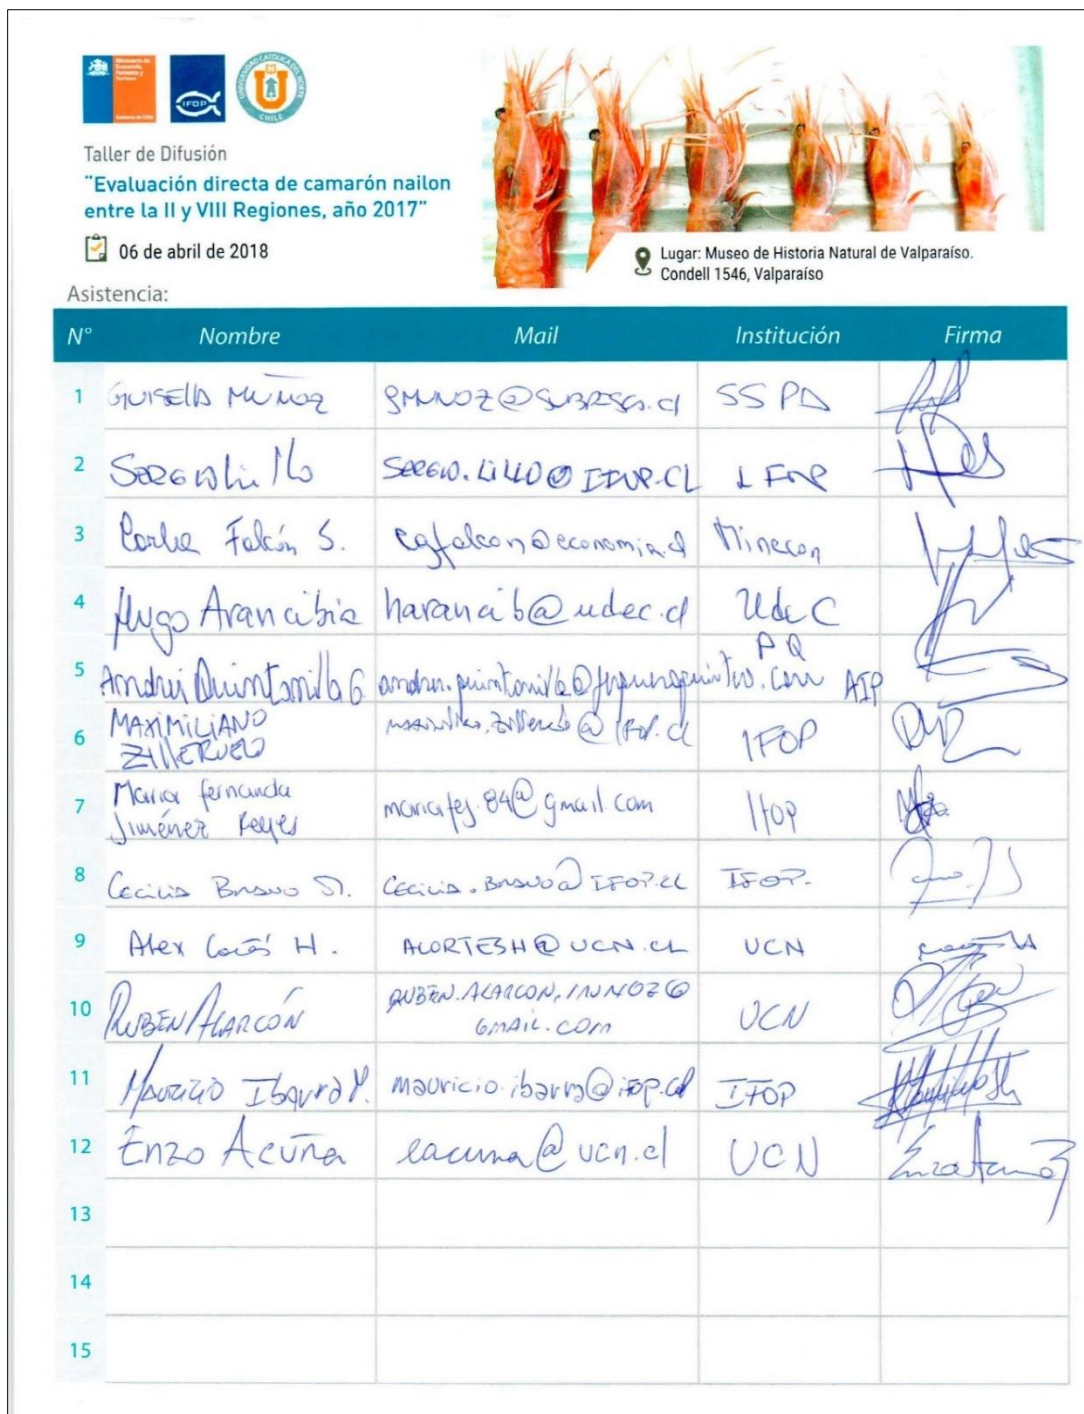 Ministerio de
Economía,
Fomento y
Turismo
Gobierno de Chile
IFOP
UNIVERSIDAD CATOLICA DEL NORTE
CHILE
Taller de Difusión
"Evaluación directa de camarón nailon
entre la II y VIII Regiones, año 2017"
06 de abril de 2018
Lugar: Museo de Historia Natural de Valparaíso.
Condell 1546, Valparaíso
Asistencia:
N° Nombre Mail Institución Firma
1 Guisella Muñoz gmunoz@subpesca.cl SSPA
2 Sergio Lillo SERGIO.LILLO@IFOP.CL IFOP
3 Carla Falcón S. cgfalcon@economia.cl Minecon
4 Hugo Arancibia harancib@udec.cl UdeC
5 Quintanilla G. AIP
6 MAXIMILIANO
ZILLERUELO @ifop.cl IFOP
7 Maria fernanda
Jiménez Reyes mariafej.84@gmail.com Ifop
8 Cecilia Bravo Cecilia.Bravo@IFOP.CL IFOP.
9 Alex Cortés H. ACORTESH@UCN.CL UCN
10 RUBEN ALARCÓN RUBEN.ALARCON.MUNOZ@
GMAIL.COM UCN
11 Mauricio Ibarra M. mauricio.ibarra@ifop.cl IFOP
12 Enzo Acuña eacuna@ucn.cl UCN Enzo Acuña
13
14
15